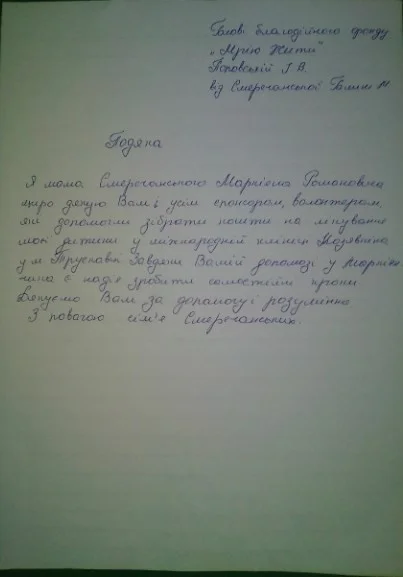 Голові благодійного фонду
„Мрію Жити"
Паровській І. В.
від Смереганської Галини М
Подяка
Я мама Смереганського Маркіяна Романовича
щиро дякую Вам і усім спонсорам, волонтерам,
які допомогли зібрати кошти на лікування
моєї дитини у міжнародній клініці Козявкіна
у м Трускавці Завдяки Вашій допомозі у Маркія-
чика є надія зробити самостійні кроки
Дякуємо Вам за допомогу і розуміння
З повагою сім'я Смереганських.